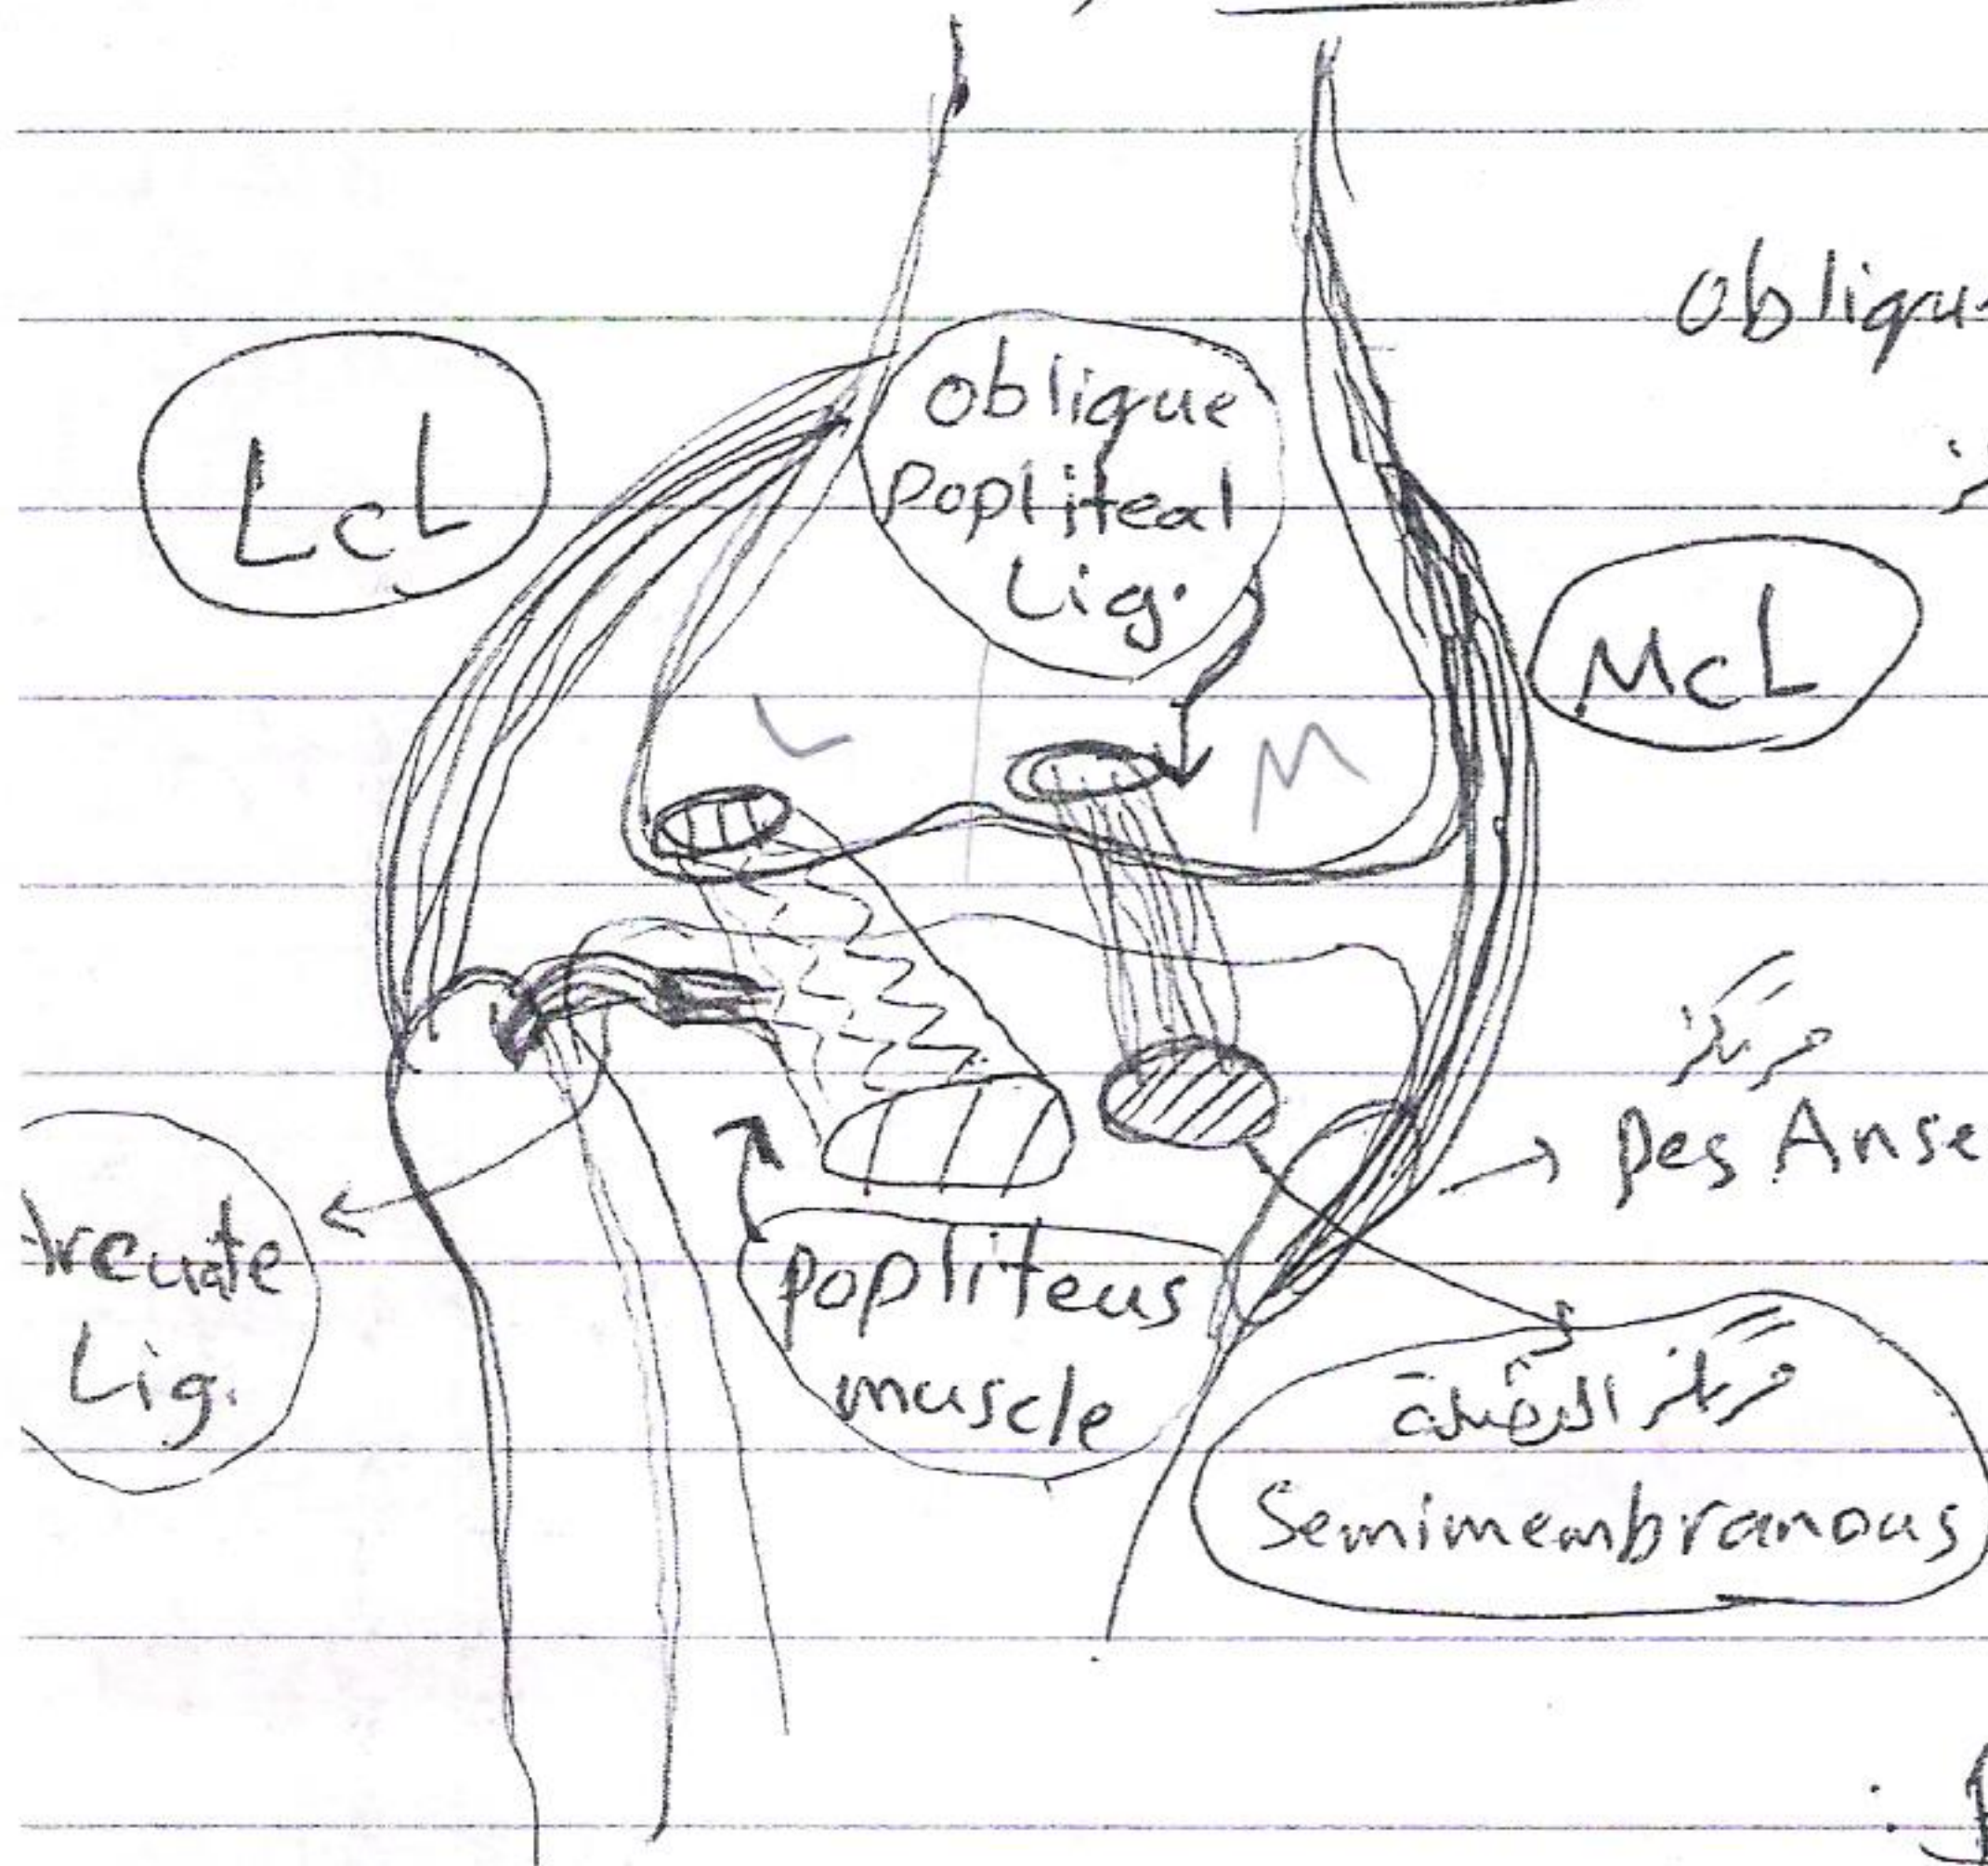 obliqu
LCL
oblique
popliteal
Lig.
MCL
L
M
مركز
pes Anse
Arcuate
Lig.
popliteus
muscle
مركز العضلة
Semimembranous